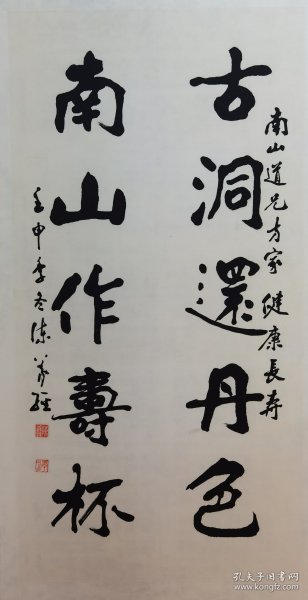 南山道兄方家 健康長寿
古洞還丹色
南山作壽杯
壬申季冬陳義経
孔夫子旧书网